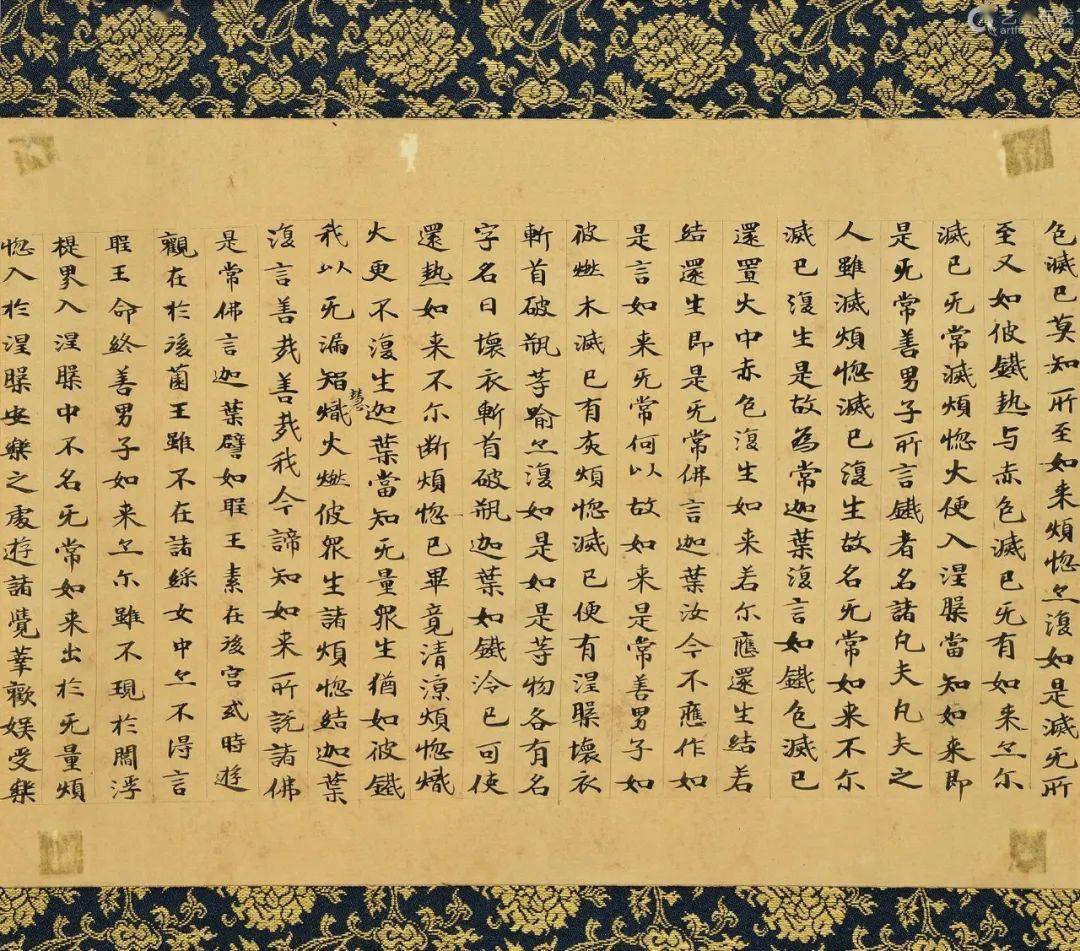 色滅已莫知所至如来煩惚亦復如是滅无所
至又如彼鐵熱与赤色滅已无有如来亦尒
滅已无常滅煩惚火便入涅槃當知如来即
是无常善男子所言鐵者名諸凡夫凡夫之
人雖滅煩惚滅已復生故名无常如来不尒
滅已復生是故為常迦葉復言如鐵色滅已
還置火中赤色復生如来若尒應還生結若
結還生即是无常佛言迦葉汝今不應作如
是言如来无常何以故如来是常善男子如
彼燃木滅已有灰煩惚滅已便有涅槃壞衣
斬首破瓶等喻亦復如是如是等物各有名
字名曰壞衣斬首破瓶迦葉如鐵冷已可使
還熱如来不尒断煩惚已畢竟清涼煩惚熾
火更不復生迦葉當知无量眾生猶如彼鐵
我以无漏智慧熾火燃彼眾生諸煩惚結迦葉
復言善哉善哉我今諦知如来所説諸佛
是常佛言迦葉譬如聖王素在後宮或時遊
觀在於後薗王雖不在諸綵女中亦不得言
聖王命終善男子如来亦尒雖不現於閻浮
提界入涅槃中不名无常如来出於无量煩
惚入於涅槃安樂之處遊諸覺華歡娱受樂